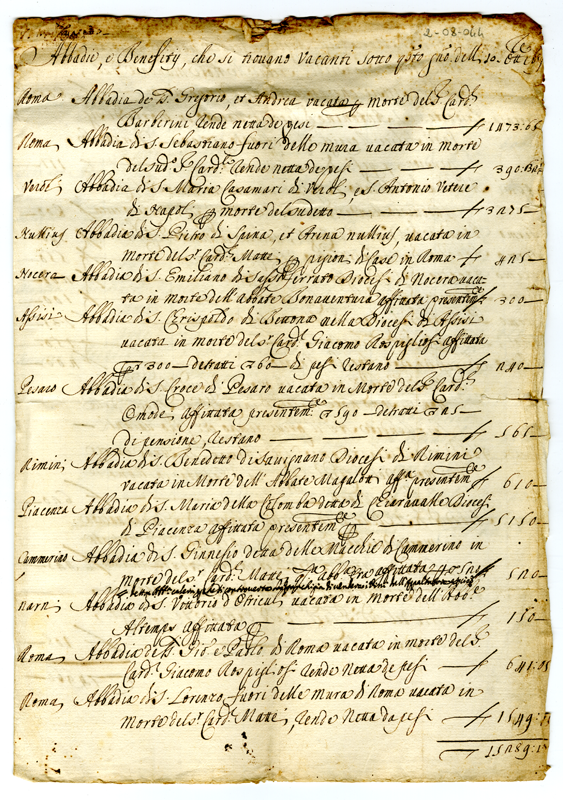 2-08-044
Abbadie, e Benefitij, che si trouano vacanti sotto q̃sto gno dell 10
Roma Abbadia de S. Gregorio, et Andrea vacata p morte del S. Card.
Barberini rende netta de pesi — 1473:65
Roma Abbadia di S. Sebastiano fuori delle mura vacata in morte
del sud.o S. Card. rende netta de pesi — 390:
Veroli Abbadia di S. Maria Casamari di Veroli, e S. Antonio Vetere
di Napoli p morte del sudetto — 3275
Nullius Abbadia di S. Pietro di Spina, et Arena nullius, vacata in
morte del S. Card. p pigioni di case in Roma 425
Nocera Abbadia di S. Emiliano di Sassoferrato Diocesi di Nocera vaca-
ta in morte dell'abbate Bonaventura affittata presentim.te 300—
Assisi Abbadia di S. Crispoldo di Bettona nella Diocesi di Assisi
vacata in morte del S. Card. Giacomo Rospigliosi affittata
300— detratti 60— di pesi restano — 240—
Pesaro Abbadia di S. Croce di Pesaro vacata in Morte del S. Card.
Omodei affittata presentem.te 590— detratti 25—
di pensione, restano — 565—
Rimini Abbadia di S. Benedetto di Savignano Diocesi di Rimini
vacata in Morte dell'Abbate Magalda aff.ta presentim.te 610—
Piacenza Abbadia di S. Maria della Colomba detta di Chiaravalle Diocesi
di Piacenza affittata presentim.te — 5150—
Cammerino Abbadia di S. Ginnesio detta delle Macchie di Cammerino in
morte del S. Card. affittata 520—
Narni Abbadia di S. Vittorio d'Otricoli vacata in morte dell'Abb.e
Altemps affittata — 150—
Roma Abbadia de S. Gio. e Paolo di Roma vacata in morte del S.
Card. Giacomo Rospigliosi rende Netta de pesi — 641:05
Roma Abbadia di S. Lorenzo fuori delle mura di Roma vacata in
Morte del S. Card. rende Netta da pesi — 1549:
15289: